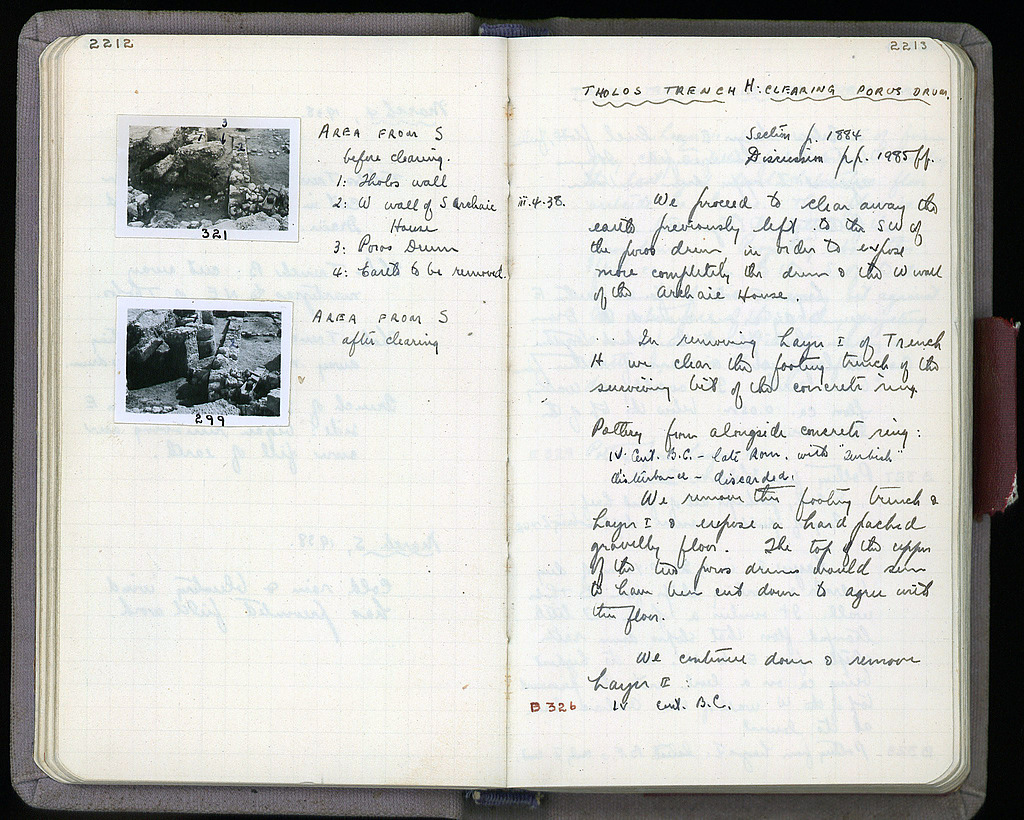 2212
3
AREA FROM S
before clearing.
1: Tholos wall
2: W wall of S Archaic
House
3: Poros Drum
4: Earth to be removed.
321
AREA FROM S
after clearing
299
2213
THOLOS TRENCH H: CLEARING POROS DRUM.
Section p. 1884
Discussion pp. 1985 ff.
iii.4.38.
We proceed to clear away the
earth previously left to the SW of
the poros drum in order to expose
more completely the drum & the W wall
of the Archaic House.
In removing Layer I of Trench
H we clear the footing trench of the
surviving bit of the concrete ring.
Pottery from alongside concrete ring:
IV Cent. B.C. - late Rom. with "Turkish"
disturbance - discarded.
We remove this footing trench &
Layer I & expose a hard packed
gravelly floor. The top of the upper
of the two poros drums would seem
to have been cut down to agree with
this floor.
We continue down & remove
Layer II:
B 326 IV cent. B.C.